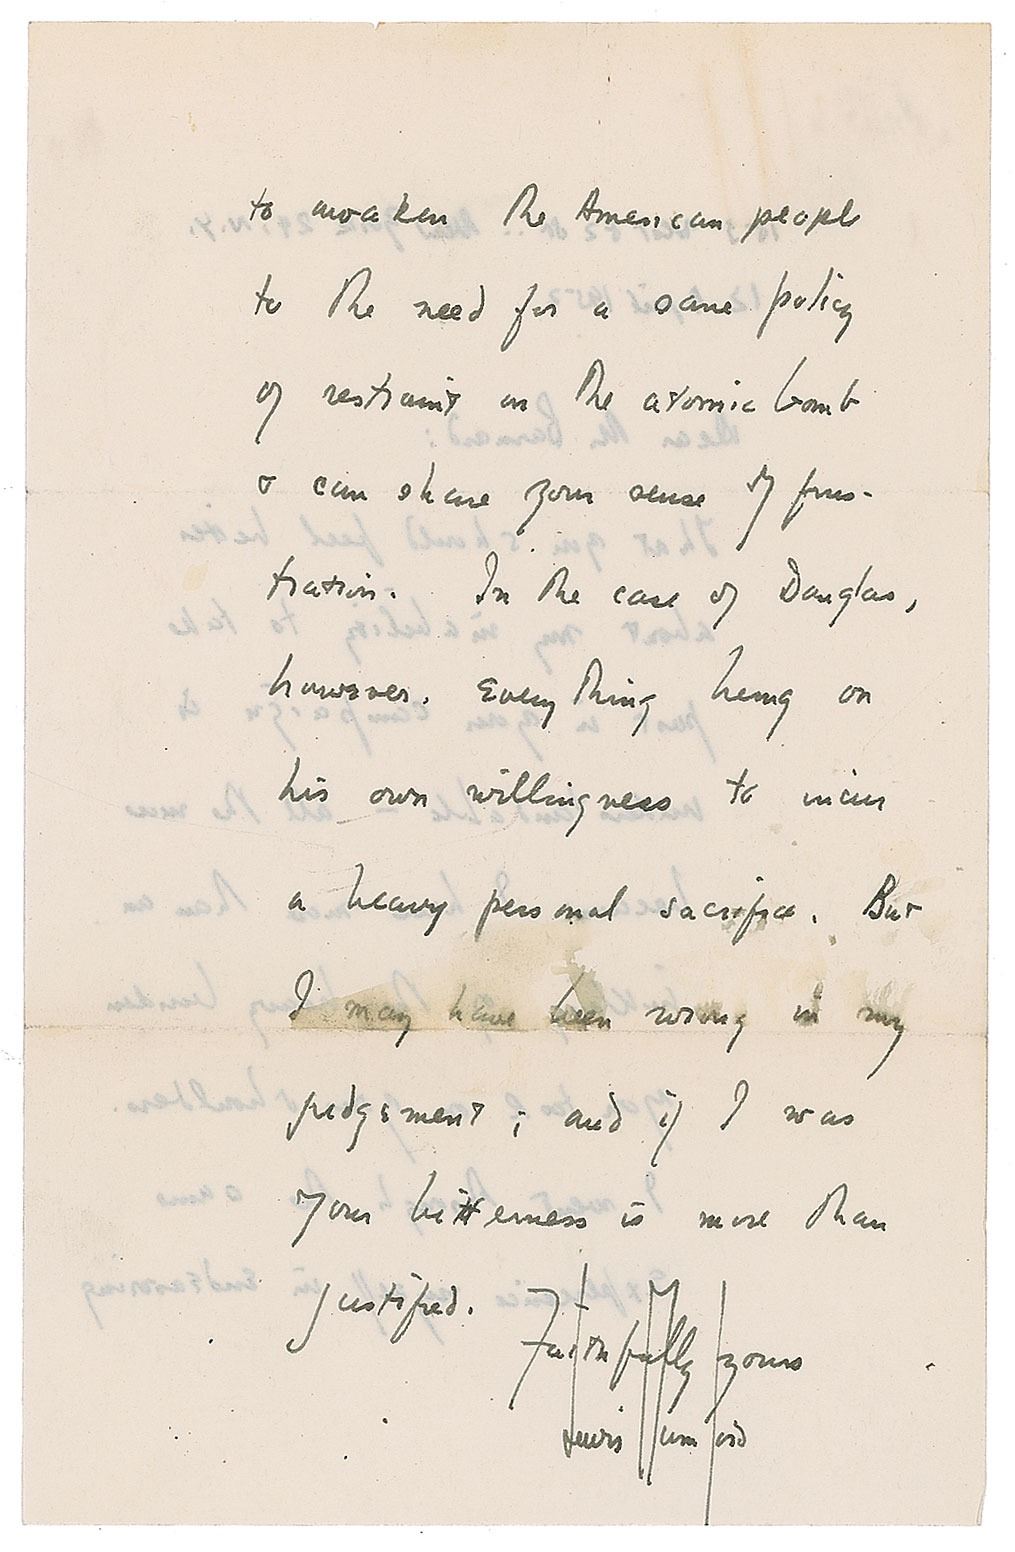 to awaken the American people
to the need for a sane policy
of restraint on the atomic bomb
& can share your sense of frus-
tration. In the case of Douglas,
however. Everything being on
his own willingness to incur
a heavy personal sacrifice. But
I may have been wrong in my
judgement; and if I was
your bitterness is more than
justified.
Faithfully yours
Lewis Mumford